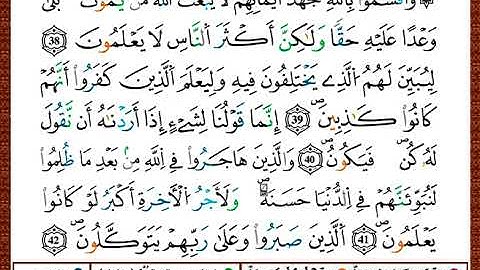 وَأَقْسَمُوا۟ بِٱللَّهِ جَهْدَ أَيْمَٰنِهِمْ لَا يَبْعَثُ ٱللَّهُ مَن يَمُوتُ ۚ بَلَىٰ
وَعْدًا عَلَيْهِ حَقًّا وَلَٰكِنَّ أَكْثَرَ ٱلنَّاسِ لَا يَعْلَمُونَ 38
لِيُبَيِّنَ لَهُمُ ٱلَّذِے يَخْتَلِفُونَ فِيهِ وَلِيَعْلَمَ ٱلَّذِينَ كَفَرُوٓا۟ أَنَّهُمْ
كَانُوا۟ كَٰذِبِينَ 39 إِنَّمَا قَوْلُنَا لِشَےْءٍ إِذَآ أَرَدْنَٰهُ أَن نَّقُولَ
لَهُۥ كُن فَيَكُونُ 40 وَٱلَّذِينَ هَاجَرُوا۟ فِے ٱللَّهِ مِنۢ بَعْدِ مَا ظُلِمُوا۟
لَنُبَوِّئَنَّهُمْ فِے ٱلدُّنْيَا حَسَنَةً وَلَأَجْرُ ٱلْأَخِرَةِ أَكْبَرُ لَوْ كَانُوا۟
يَعْلَمُونَ 41 ٱلَّذِينَ صَبَرُوا۟ وَعَلَىٰ رَبِّهِمْ يَتَوَكَّلُونَ 42